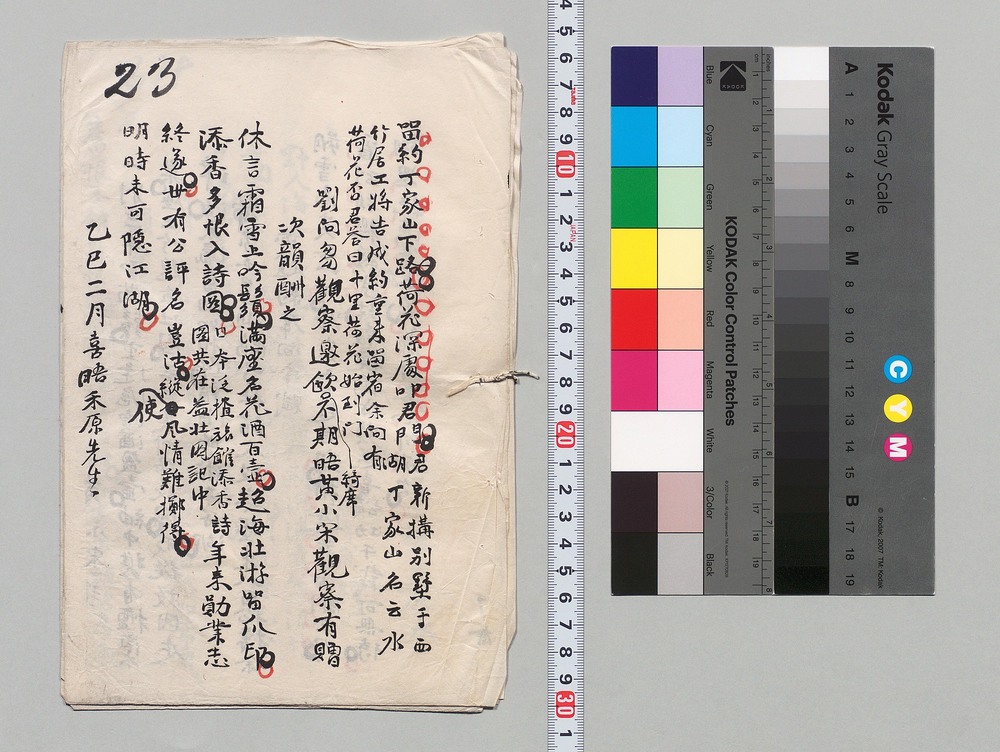 23
留約丁家山下路荷花深處叩君門君新搆別墅于西
湖丁家山名云水
竹居工將告成約重來留宿余問有
荷花否君答曰十里荷花始到門
劉問芻觀察邀飲不期晤黃小宋觀察有贈
次韻酬之
休言霜雪上吟鬚滿座名花酒百壺超海壯游留爪印
添香多恨入詩圖日本泛槎旅館添香詩
圖共在益壯圖記中
年來勛業志
終遂世有公評名豈沽縱使風情難擲得
明時未可隱江湖
乙巳二月喜晤禾原先生
4 5 6 7 8 9 10 1 2 3 4 5 6 7 8 9 20 1 2 3 4 5 6 7 8 9 30 1
KODAK Color Control Patches
Blue
Cyan
Green
Yellow
Red
Magenta
White
3/Color
Black
Kodak Gray Scale
A 1 2 3 4 5 6 M 8 9 10 11 12 13 14 15 B 17 18 19
C
Y
M
© Kodak, 2007 TM: Kodak